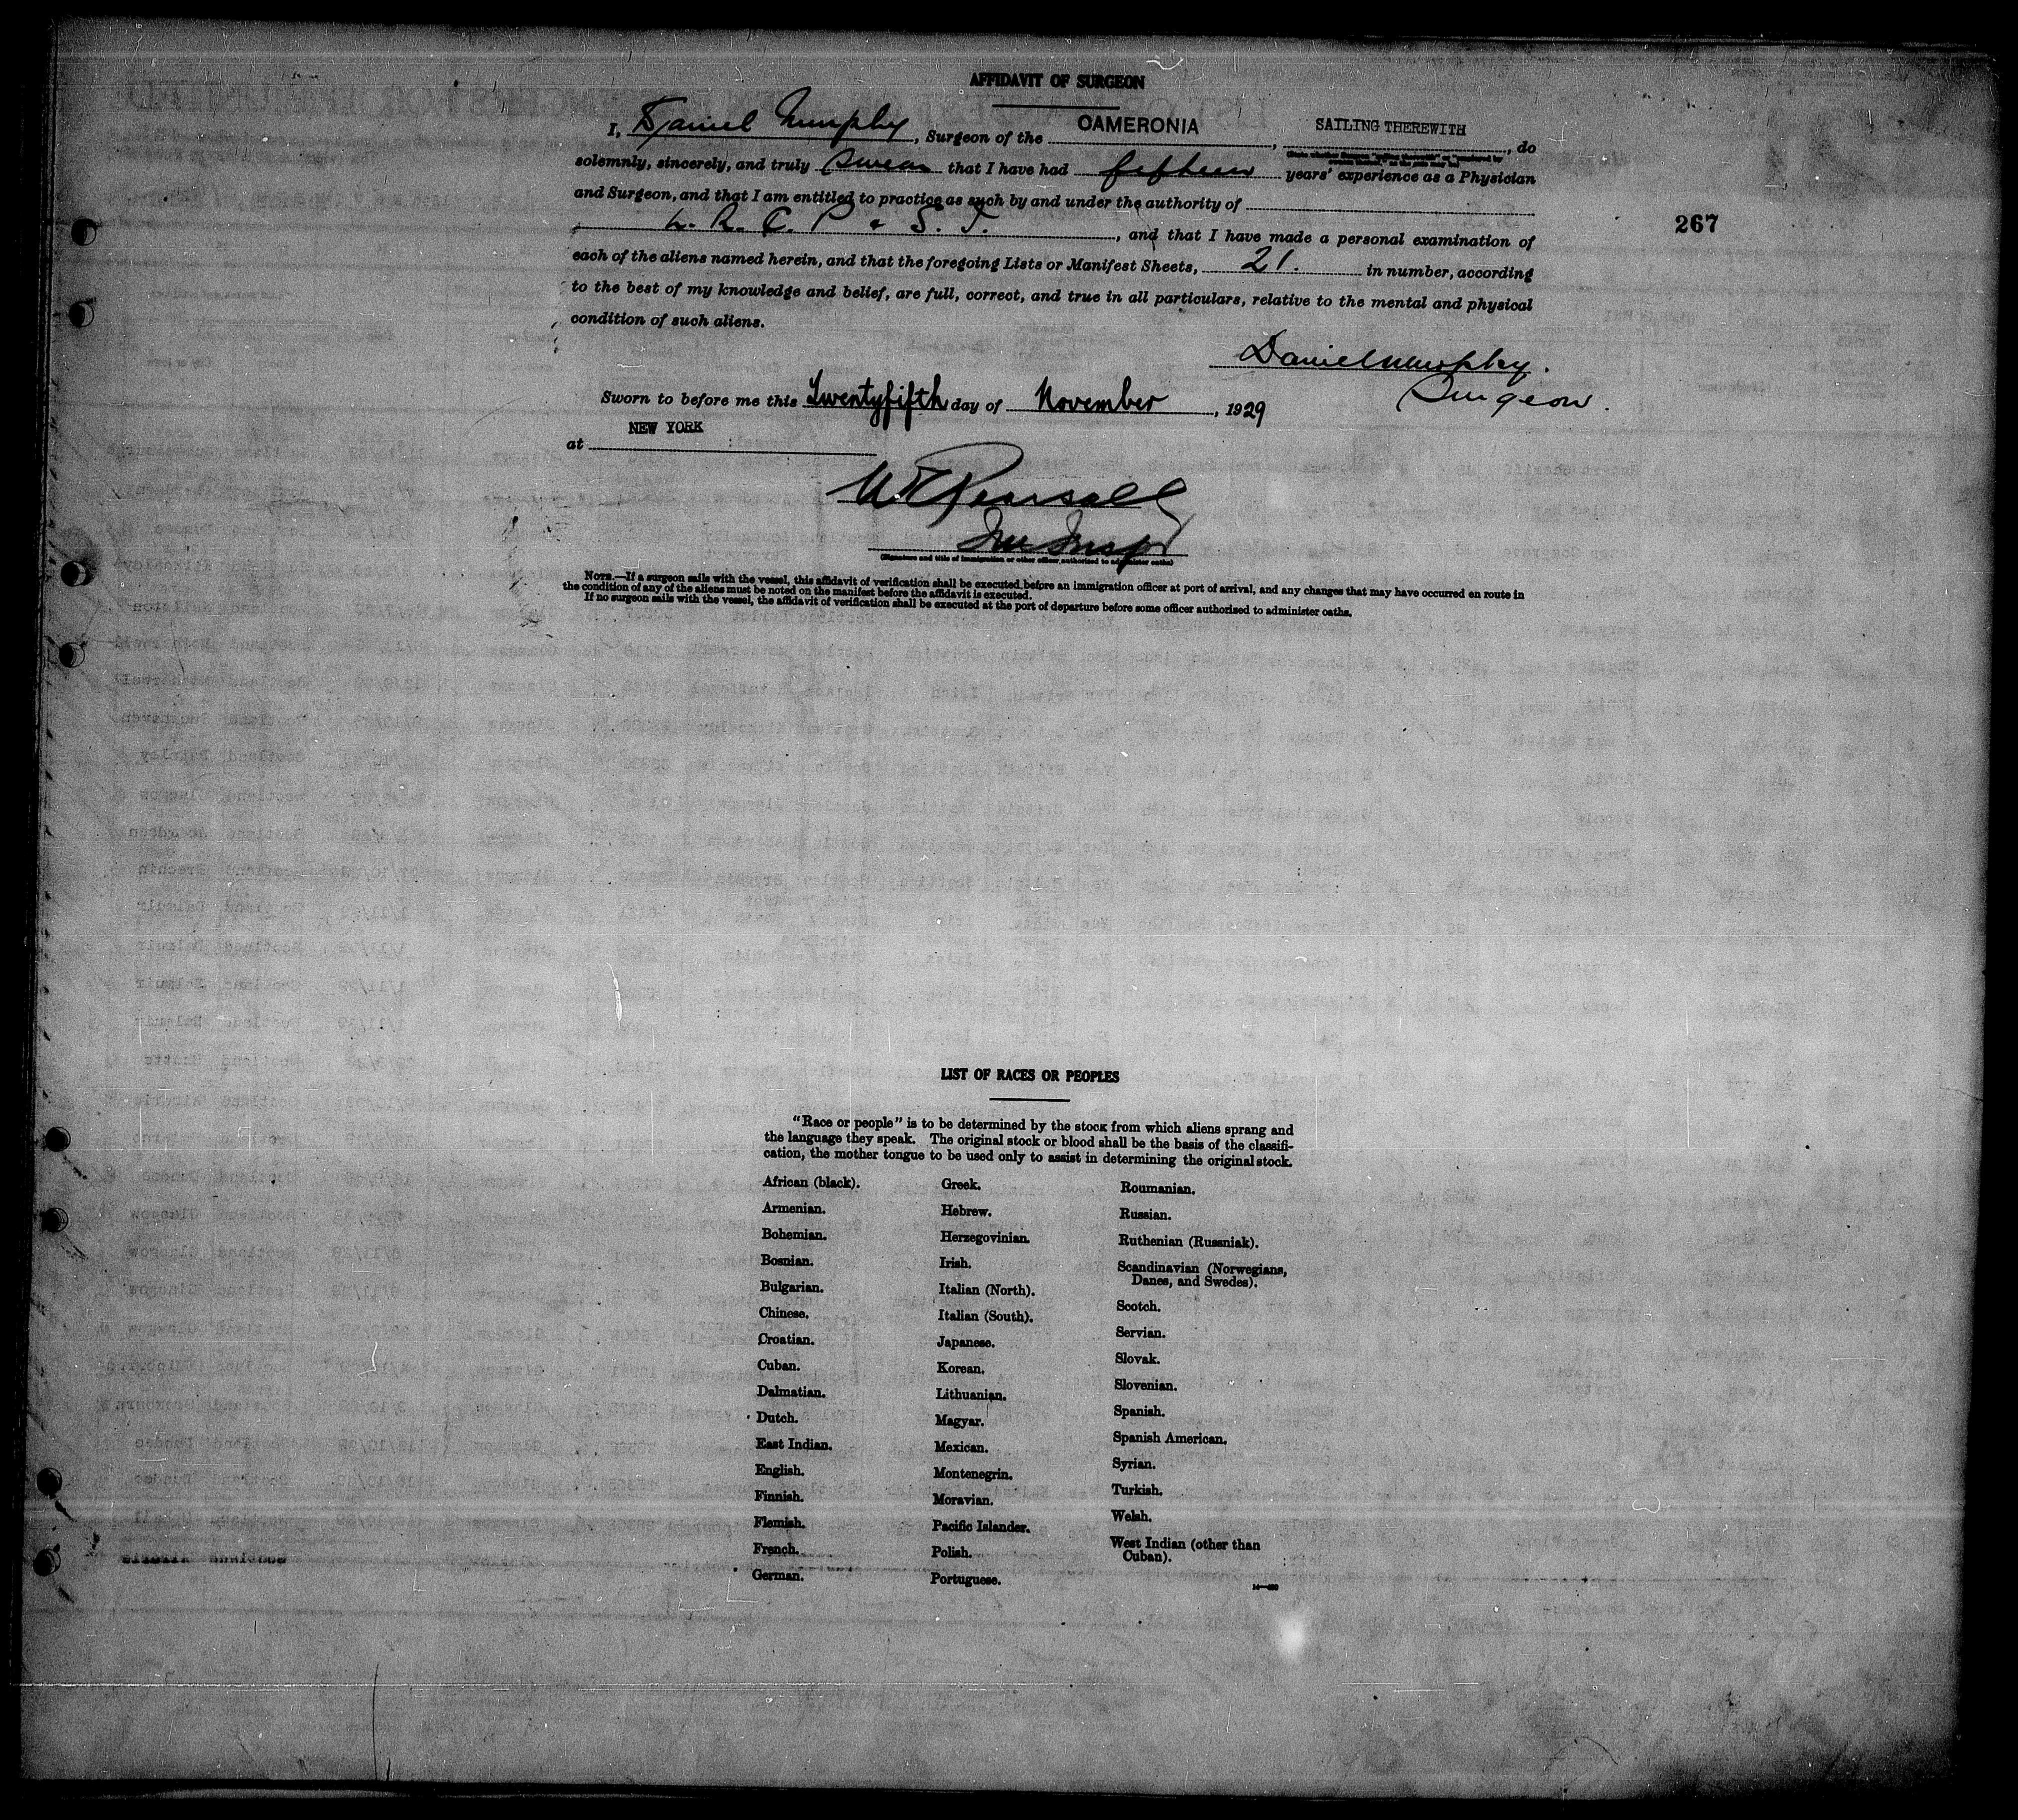 AFFIDAVIT OF SURGEON
I, Daniel Murphy, Surgeon of the CAMERONIA, SAILING THEREWITH, do
solemnly, sincerely, and truly swear that I have had fifteen years' experience as a Physician
and Surgeon, and that I am entitled to practice as such by and under the authority of
L. R. C. P & S. I., and that I have made a personal examination of
each of the aliens named herein, and that the foregoing Lists or Manifest Sheets, 21. in number, according
to the best of my knowledge and belief, are full, correct, and true in all particulars, relative to the mental and physical
condition of such aliens.
267
Daniel Murphy.
Surgeon.
Sworn to before me this Twentyfifth day of November, 1929
at NEW YORK
W Pearsall
Imm Inspr
(Signature and title of immigration or other officer authorized to administer oaths)
NOTE.—If a surgeon sails with the vessel, this affidavit of verification shall be executed before an immigration officer at port of arrival, and any changes that may have occurred en route in
the condition of any of the aliens must be noted on the manifest before the affidavit is executed.
If no surgeon sails with the vessel, the affidavit of verification shall be executed at the port of departure before some officer authorized to administer oaths.
LIST OF RACES OR PEOPLES
"Race or people" is to be determined by the stock from which aliens sprang and
the language they speak. The original stock or blood shall be the basis of the classifi-
cation, the mother tongue to be used only to assist in determining the original stock.
African (black).
Armenian.
Bohemian.
Bosnian.
Bulgarian.
Chinese.
Croatian.
Cuban.
Dalmatian.
Dutch.
East Indian.
English.
Finnish.
Flemish.
French.
German.
Greek.
Hebrew.
Herzegovinian.
Irish.
Italian (North).
Italian (South).
Japanese.
Korean.
Lithuanian.
Magyar.
Mexican.
Montenegrin.
Moravian.
Pacific Islander.
Polish.
Portuguese.
Roumanian.
Russian.
Ruthenian (Russniak).
Scandinavian (Norwegians,
Danes, and Swedes).
Scotch.
Servian.
Slovak.
Slovenian.
Spanish.
Spanish American.
Syrian.
Turkish.
Welsh.
West Indian (other than
Cuban).